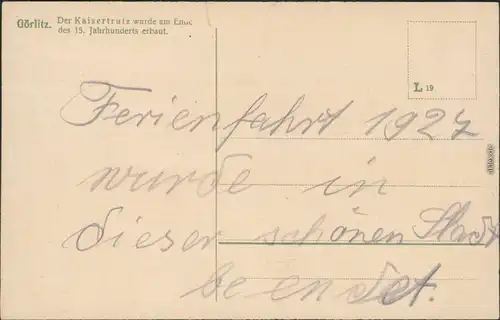 Görlitz. Der Kaisertrutz wurde am Ende
des 15. Jahrhunderts erbaut.
L 19
Ferienfahrt 1927
wurde in
dieser schönen Stadt
beendet.